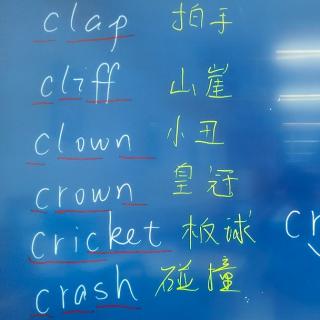 clap 拍手
cliff 山崖
clown 小丑
crown 皇冠
cricket 板球
crash 碰撞
cr